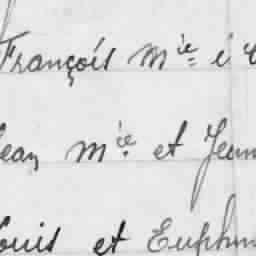 François Mie é
Jean Mie et Jean
Louis et Euphm